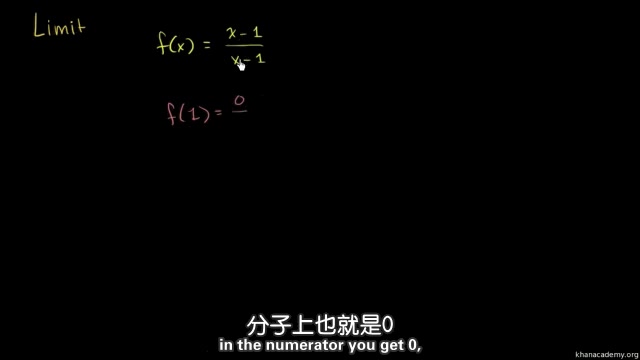 Limit
f(x) = x-1 / x-1
f(1) = 0
分子上也就是0
in the numerator you get 0,
khanacademy.org